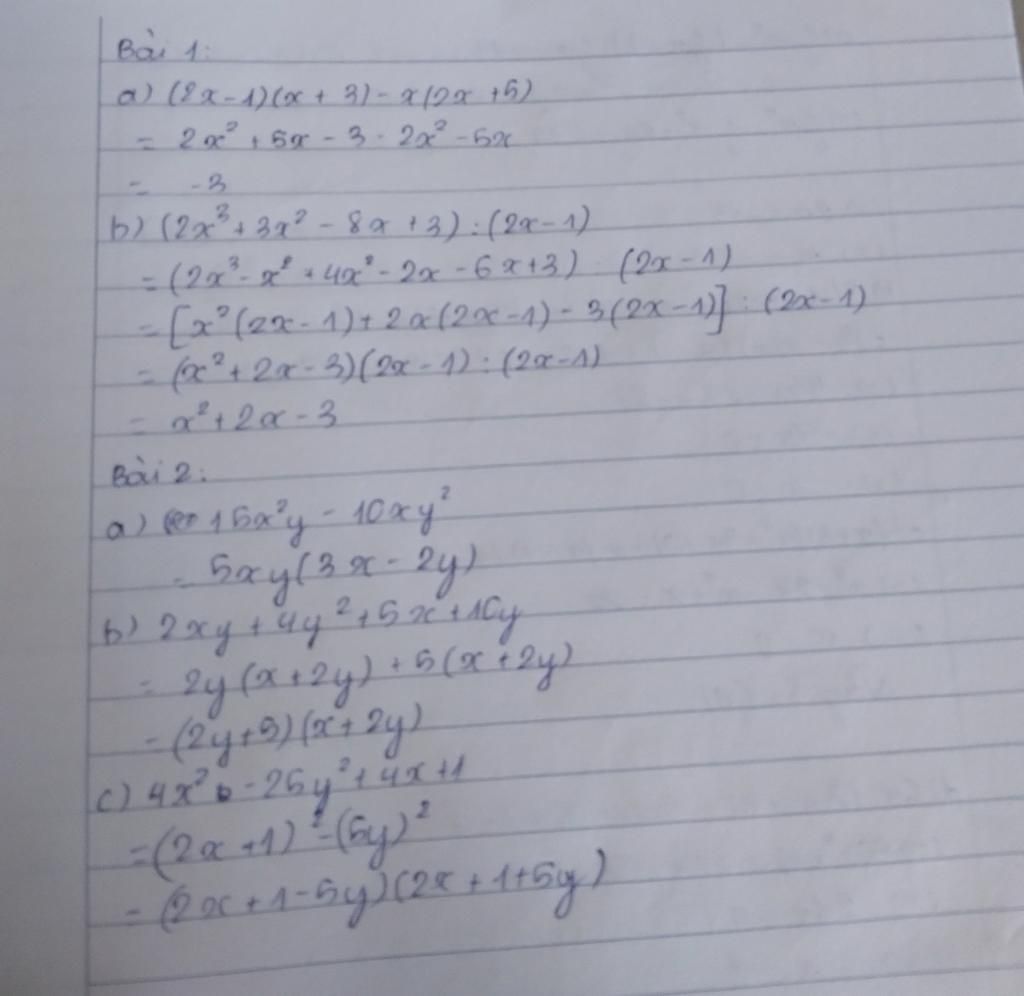 Bài 1:
a) (2x-1)(x + 3) - x(2x +5)
= 2x² + 5x - 3 - 2x² - 5x
= -3
b) (2x³ + 3x² - 8x + 3) : (2x-1)
= (2x³ - x² + 4x² - 2x - 6x+3) : (2x-1)
= [x²(2x-1) + 2x(2x-1) - 3(2x-1)] : (2x-1)
= (x² + 2x - 3)(2x - 1) : (2x-1)
= x² + 2x - 3
Bài 2:
a) 15x²y - 10xy²
= 5xy(3x - 2y)
b) 2xy + 4y² + 5x + 10y
= 2y(x+2y) + 5(x+2y)
= (2y+5)(x+2y)
c) 4x² - 25y² + 4x+1
= (2x+1)² - (5y)²
= (2x+1-5y)(2x+1+5y)